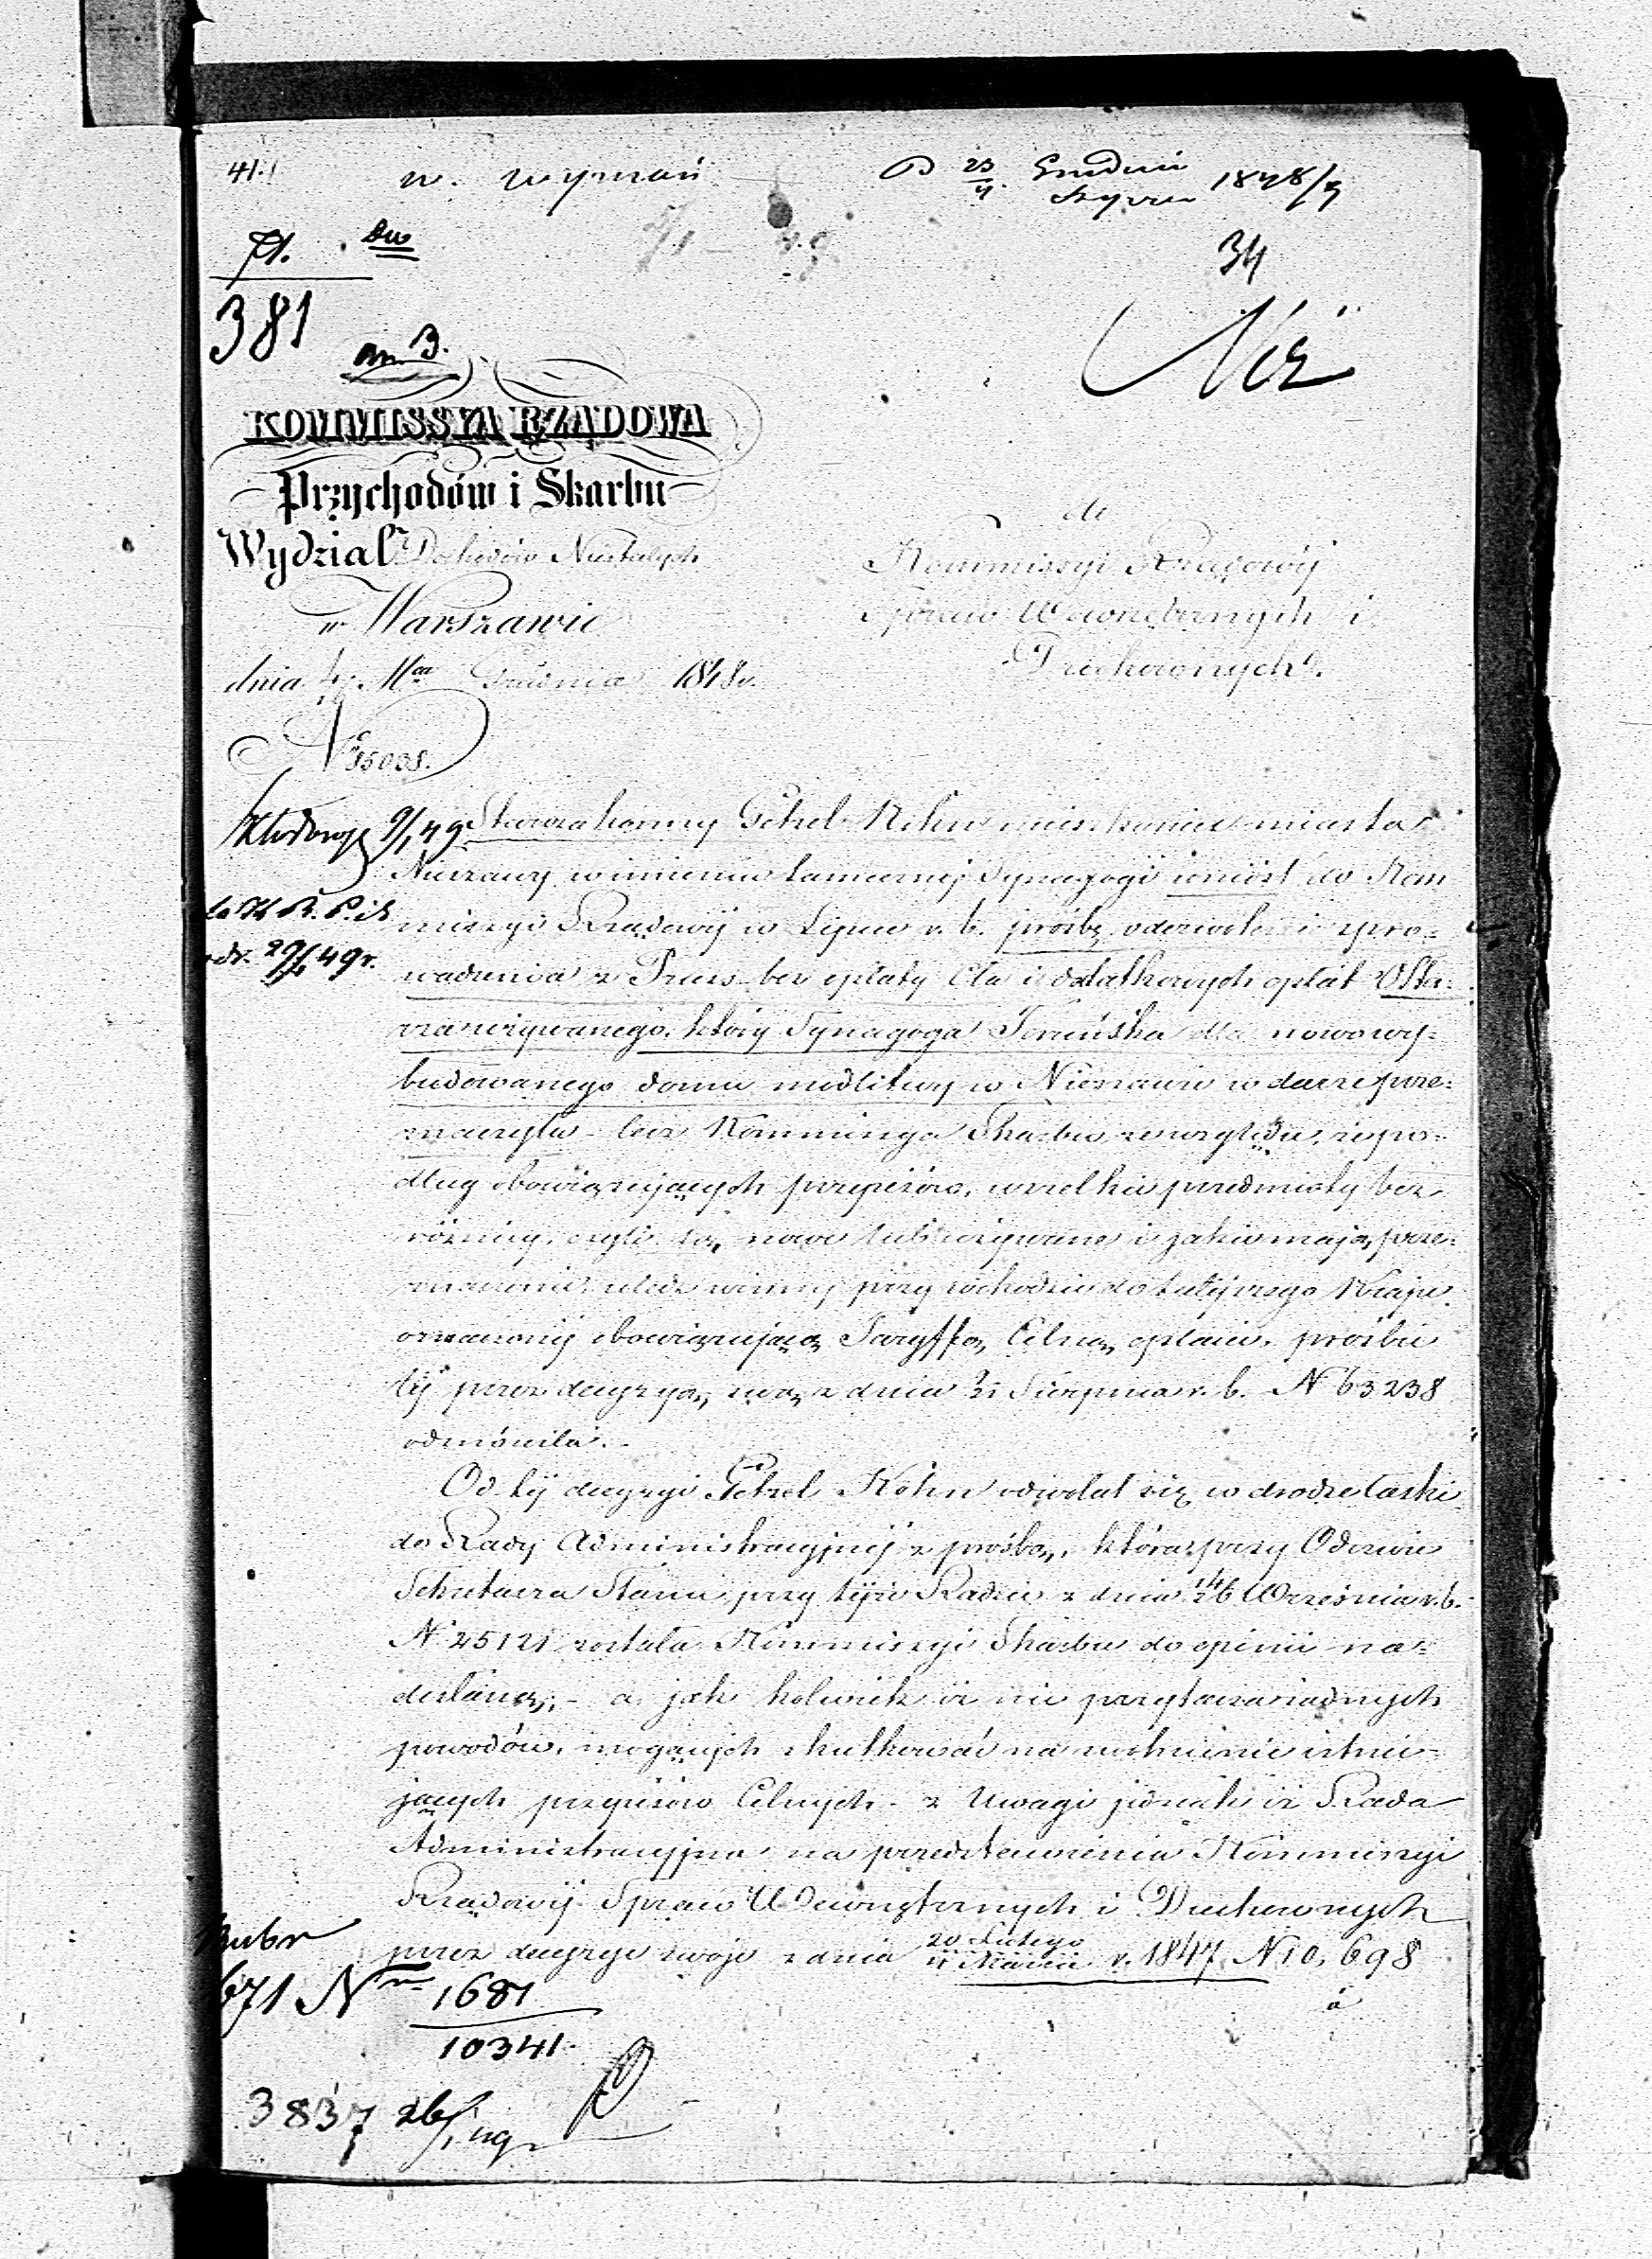 41.
w. wyznań
D 23/4 Grudnia Stycznia 1848/9
34
381
KOMMISSYA RZĄDOWA
Przychodów i Skarbu
Wydział Dochodów Niestałych
w Warszawie
dnia Mca Grudnia 1848 r.
do
Kommissyi Rządowéj
Spraw Wewnętrznych i
Duchownych.
9/1 49
Starozakonny Getzel Kohn mieszkaniec miasta
Nieszawy w imieniu tamecznéj Synagogi wniósł do Kom
missyi Rządowéj w Lipcu r. b. prośbę o dozwolenie spro-
29/1 49 r.
wadzenia z Pruss bez opłaty Cła i dodatkowych opłat Ołta-
rza używanego, który Synagoga Toruńska dla nowowy-
budowanego domu modlitwy w Nieszawie w darze prze-
znaczyła – lecz Kommissya Skarbu ze względu, że po-
dług obowiązujących przepisów, wszelkie przedmioty bez
różnicy, czyli są, nowe lub używane i jakie mają prze-
znaczenie, uledz winny przy wchodzie do tutejszego Kraju
oznaczonéj obowiązującą Taryffą Celną opłacie, prośbie
téj przez decyzyą swą z dnia Sierpnia r. b. N 63238
odmówiła. –
Od téj decyzyi Getzel Kohn odwołał się w drodze łaski
do Rady Administracyjnéj z prośbą, która przy Odezwie
Sekretarza Stanu przy téjże Radzie z dnia 14/26 Września r. b.
N 25121 została Kommissyi Skarbu do opinii na-
desłaną; – a jakkolwiek iż nie przytacza żadnych
powodów, mogących skutkować na uchylenie istnie-
jących przepisów Celnych – z Uwagi jednak iż Rada
Administracyjna na przedstawienie Kommissyi
Rządowéj Spraw Wewnętrznych i Duchownych
przez decyzye swoje z dnia 20 Lutego r. 1847 N 10,698
671 N 1681
10341.
3837 26/1 49